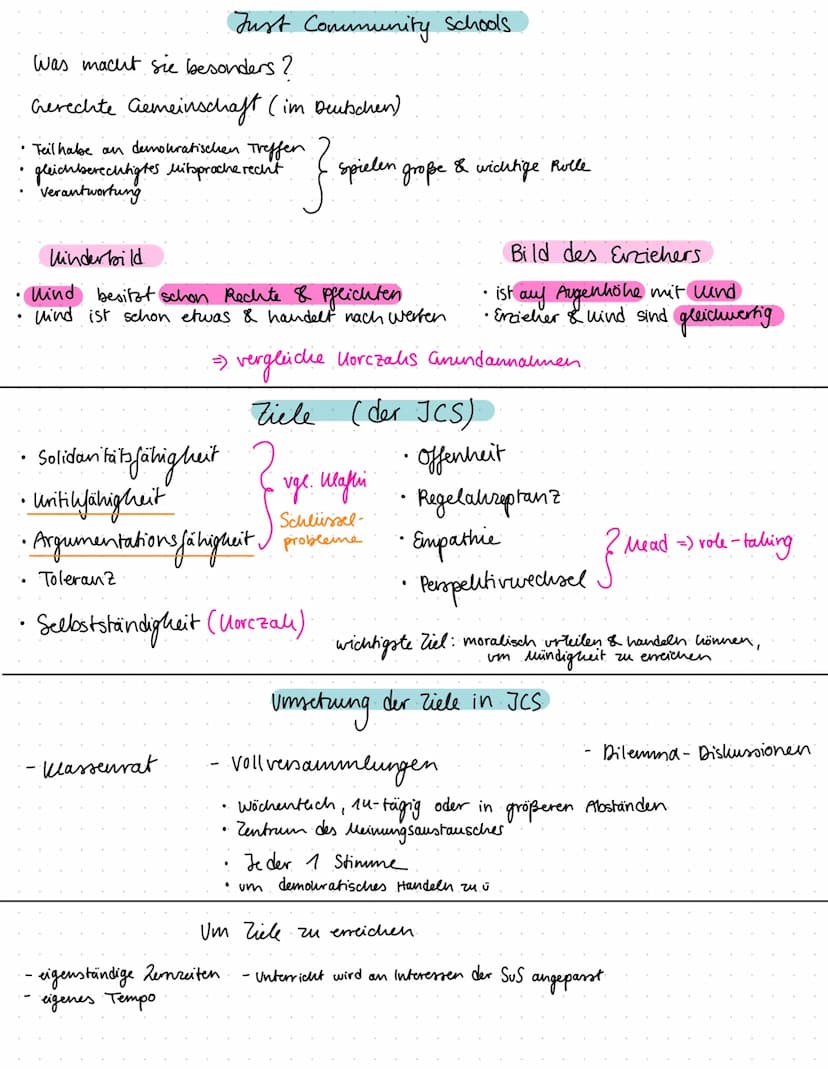 Just Community Schools
Was macht sie besonders?
Gerechte Gemeinschaft (im Deutschen)
• Teilhabe an demokratischen Treffen
• gleichberechtigtes Mitspracherecht
• Verantwortung
} spielen große & wichtige Rolle
Kinderbild
• Kind besitzt schon Rechte & Pflichten
• Kind ist schon etwas & handelt nach Werten
Bild des Erziehers
• ist auf Augenhöhe mit Kind
• Erzieher & Kind sind gleichwertig
=> vergleiche Korczaks Grundannahmen
Ziele (der JCS)
• Solidaritätsfähigkeit
• Kritikfähigkeit
• Argumentationsfähigkeit
} vgl. Klafki
Schlüssel-
probleme
• Toleranz
• Selbstständigkeit (Korczak)
• Offenheit
• Regelakzeptanz
• Empathie
• Perspektivwechsel
} Mead => role-taking
wichtigste Ziel: moralisch urteilen & handeln können,
um Mündigkeit zu erreichen
Umsetzung der Ziele in JCS
- Klassenrat
- Vollversammlungen
• Wöchentlich, 14-tägig oder in größeren Abständen
• Zentrum des Meinungsaustausches
• Jeder 1 Stimme
• um demokratisches Handeln zu ü
- Dilemma-Diskussionen
Um Ziele zu erreichen
- eigenständige Lernzeiten
- eigenes Tempo
- Unterricht wird an Interessen der SuS angepasst